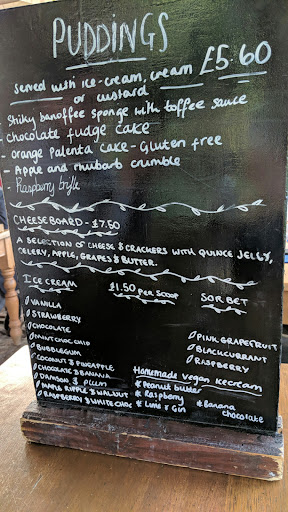 PUDDINGS
Served with ice-cream, cream £5.60
or custard
- Stiky banoffee sponge with toffee sauce
- Chocolate fudge cake
- Orange Palenta cake - Gluten free
- Apple and rhubarb crumble
- Raspberry trifle
CHEESEBOARD - £7.50
A SELECTION OF CHEESE & CRACKERS WITH QUINCE JELLY,
CELERY, APPLE, GRAPES & BUTTER.
ICE CREAM £1.50 PER SCOOP SORBET
VANILLA
STRAWBERRY
CHOCOLATE
MINT CHOC CHIP
BUBBLEGUM
COCONUT & PINEAPPLE
CHOCOLATE & BANANA
DAMSON & plum
MAPLE RIPPLE & WALNUT
RASPBERRY & WHITE CHOC
PINK GRAPEFRUIT
BLACKCURRANT
RASPBERRY
Homemade vegan icecream
* Peanut butter
* Raspberry
* Lime & Gin
* Banana
chocolate